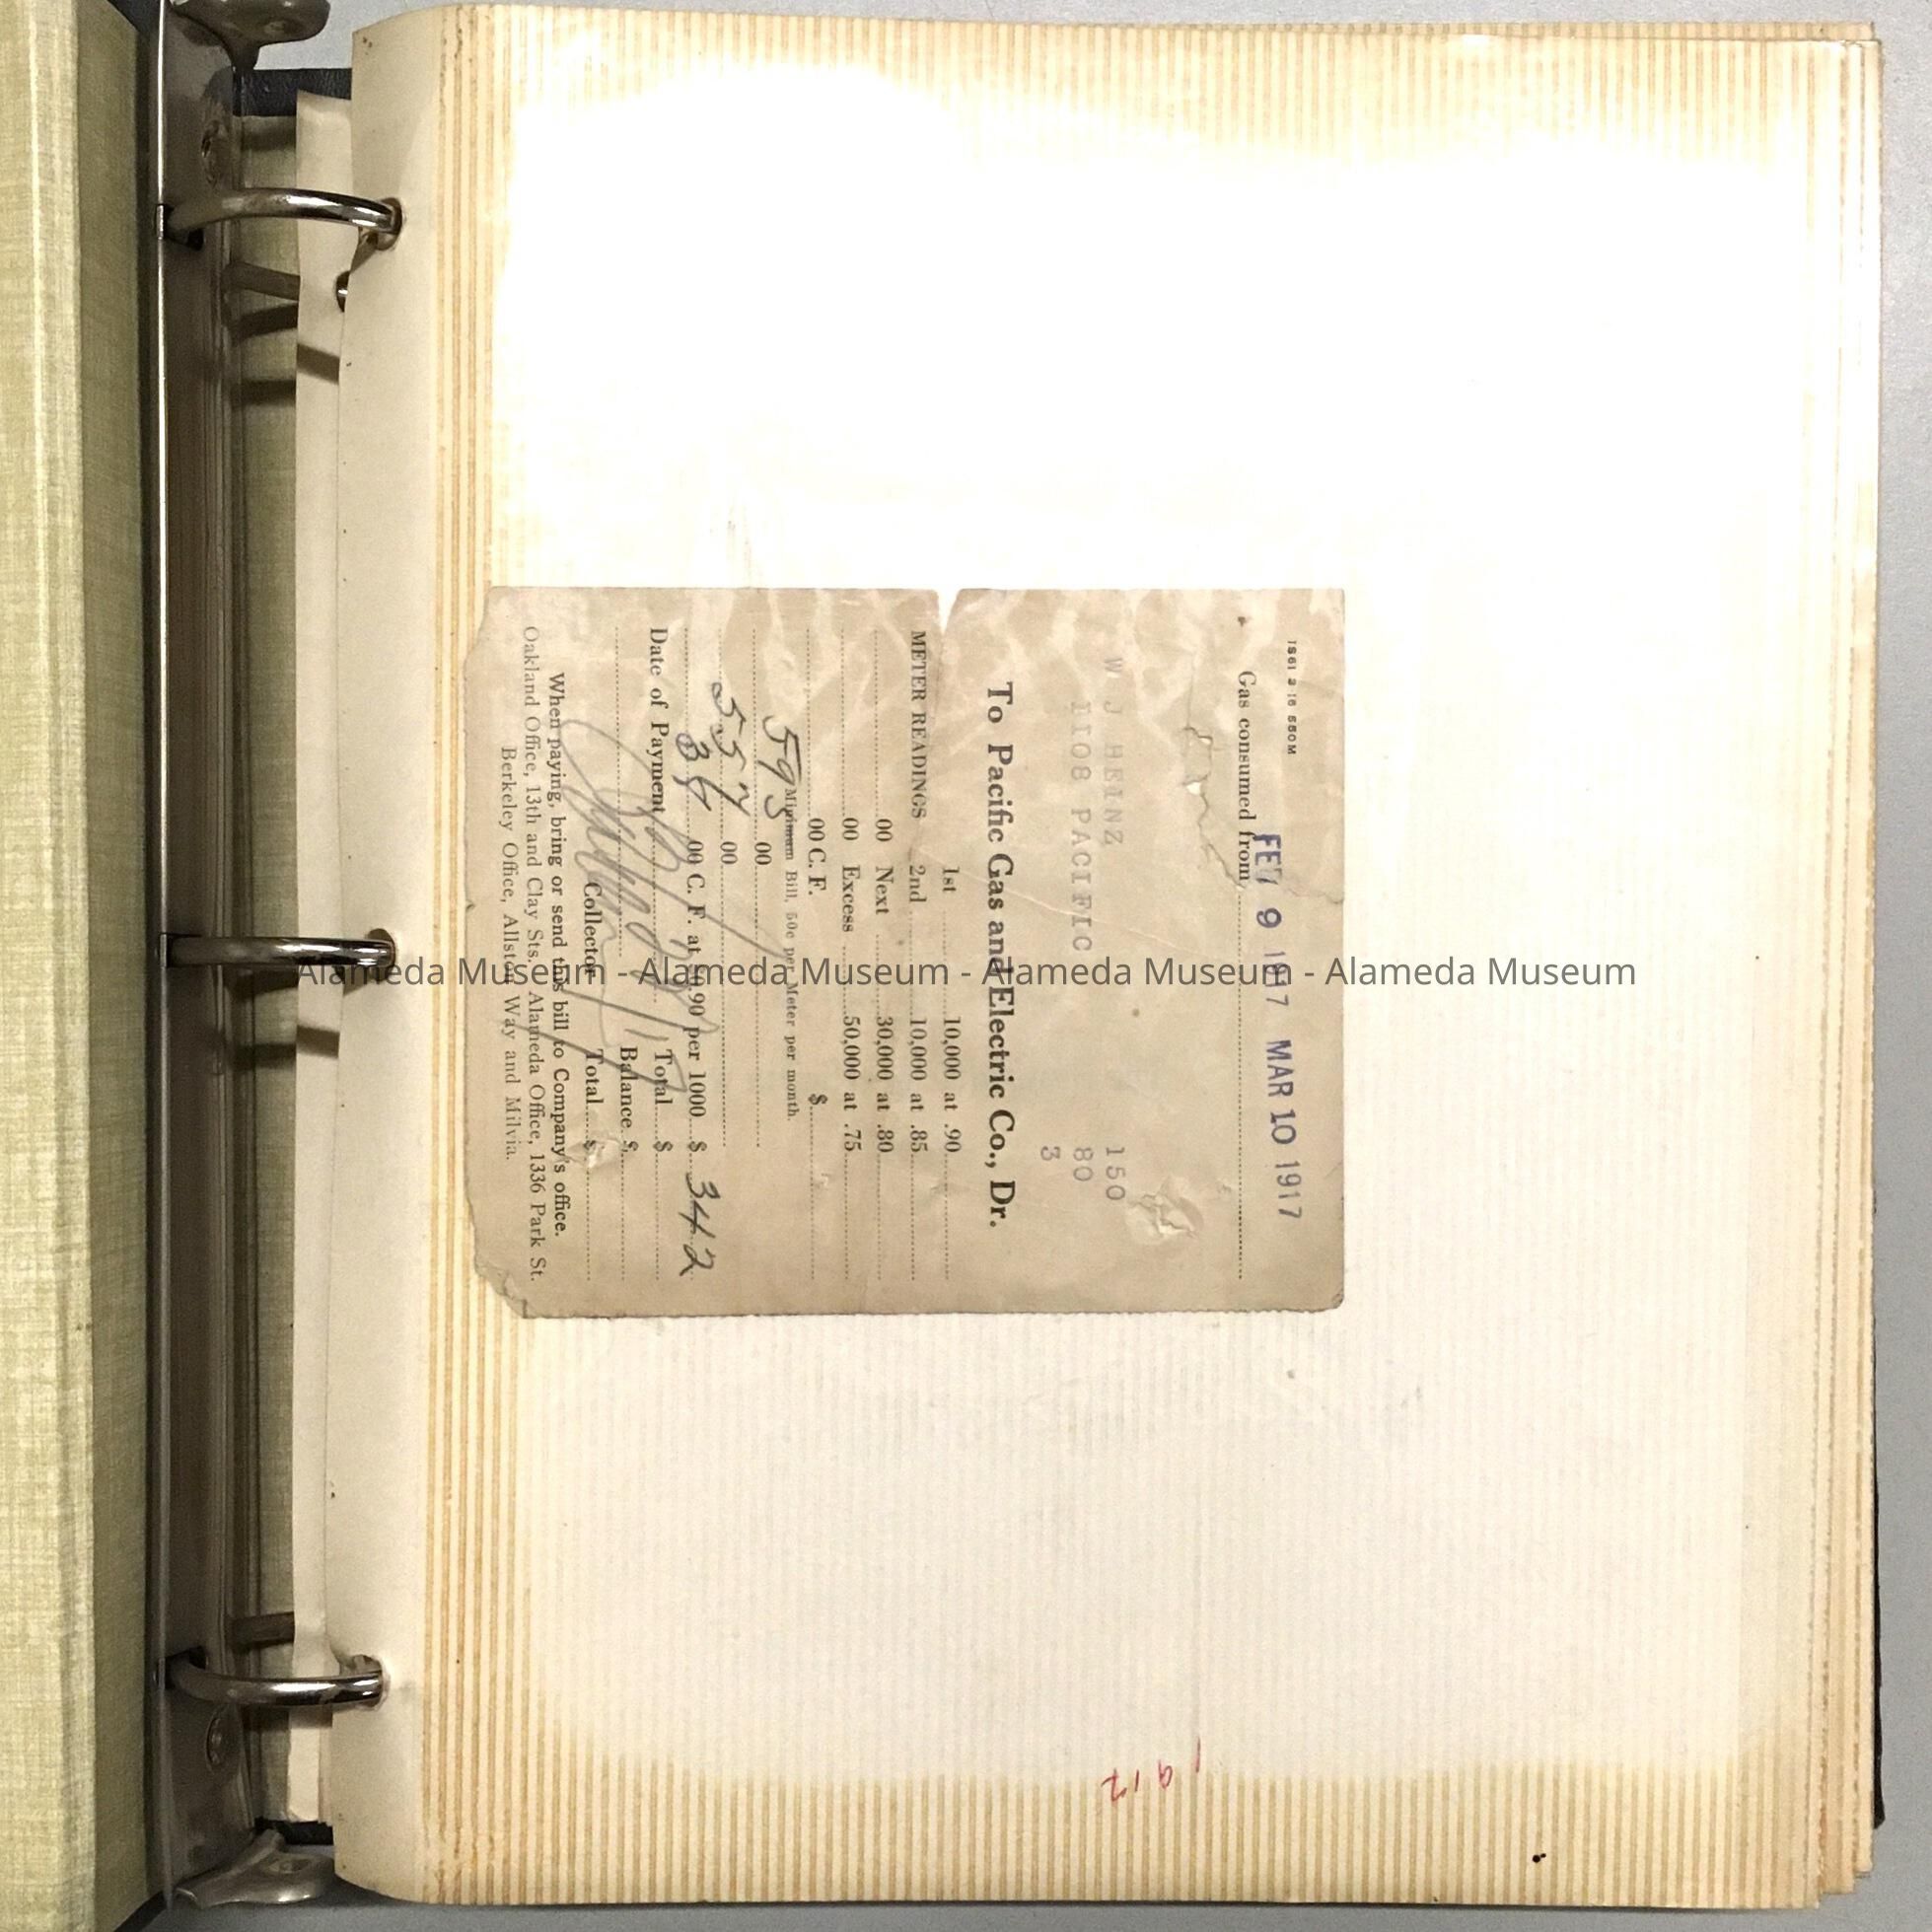 1S61 2 16 550M
FEB 9 1917 MAR 10 1917
Gas consumed from
W J HEINZ 150
1108 PACIFIC 80
3
To Pacific Gas and Electric Co., Dr.
1st 10,000 at .90
METER READINGS 2nd 10,000 at .85
00 Next 30,000 at .80
00 Excess 50,000 at .75
00 C. F. $
Minimum Bill, 50c per Meter per month.
593 00
557 00
38 00 C. F. at $0.90 per 1000 $ 342
Date of Payment Total $
Balance $
Collector Total $
When paying, bring or send this bill to Company's office.
Oakland Office, 13th and Clay Sts. Alameda Office, 1336 Park St.
Berkeley Office, Allston Way and Milvia.
1917
Alameda Museum - Alameda Museum - Alameda Museum - Alameda Museum